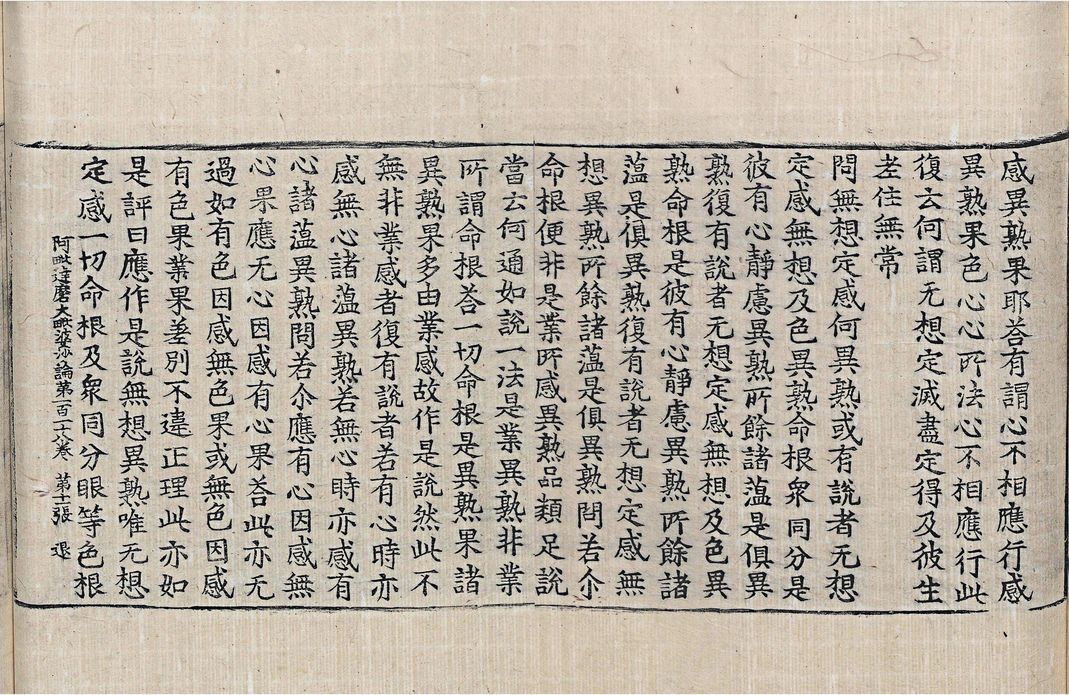 感異熟果耶荅有謂心不相應行感
異熟果色心心所法心不相應行此
復云何謂无想定滅盡定得及彼生
老住無常
問無想定感何異熟或有說者无想
定感無想及色異熟命根衆同分是
彼有心靜慮異熟所餘諸蕰是俱異
熟復有說者无想定感無想及色異
熟命根是彼有心靜慮異熟所餘諸
蕰是俱異熟復有說者无想定感無
想異熟所餘諸蕰是俱異熟問若尒
命根便非是業所感異熟品類足說
當云何通如說一法是業異熟非業
所謂命根荅一切命根是異熟果諸
異熟果多由業感故作是說然此不
無非業感者復有說者若有心時亦
感無心諸蕰異熟若無心時亦感有
心諸蕰異熟問若尒應有心因感無
心果應无心因感有心果荅此亦无
過如有色因感無色果或無色因感
有色果業果差別不違正理此亦如
是評曰應作是說無想異熟唯无想
定感一切命根及衆同分眼等色根
阿毗達磨大毗婆沙論第一百一十八卷 第十一張 退